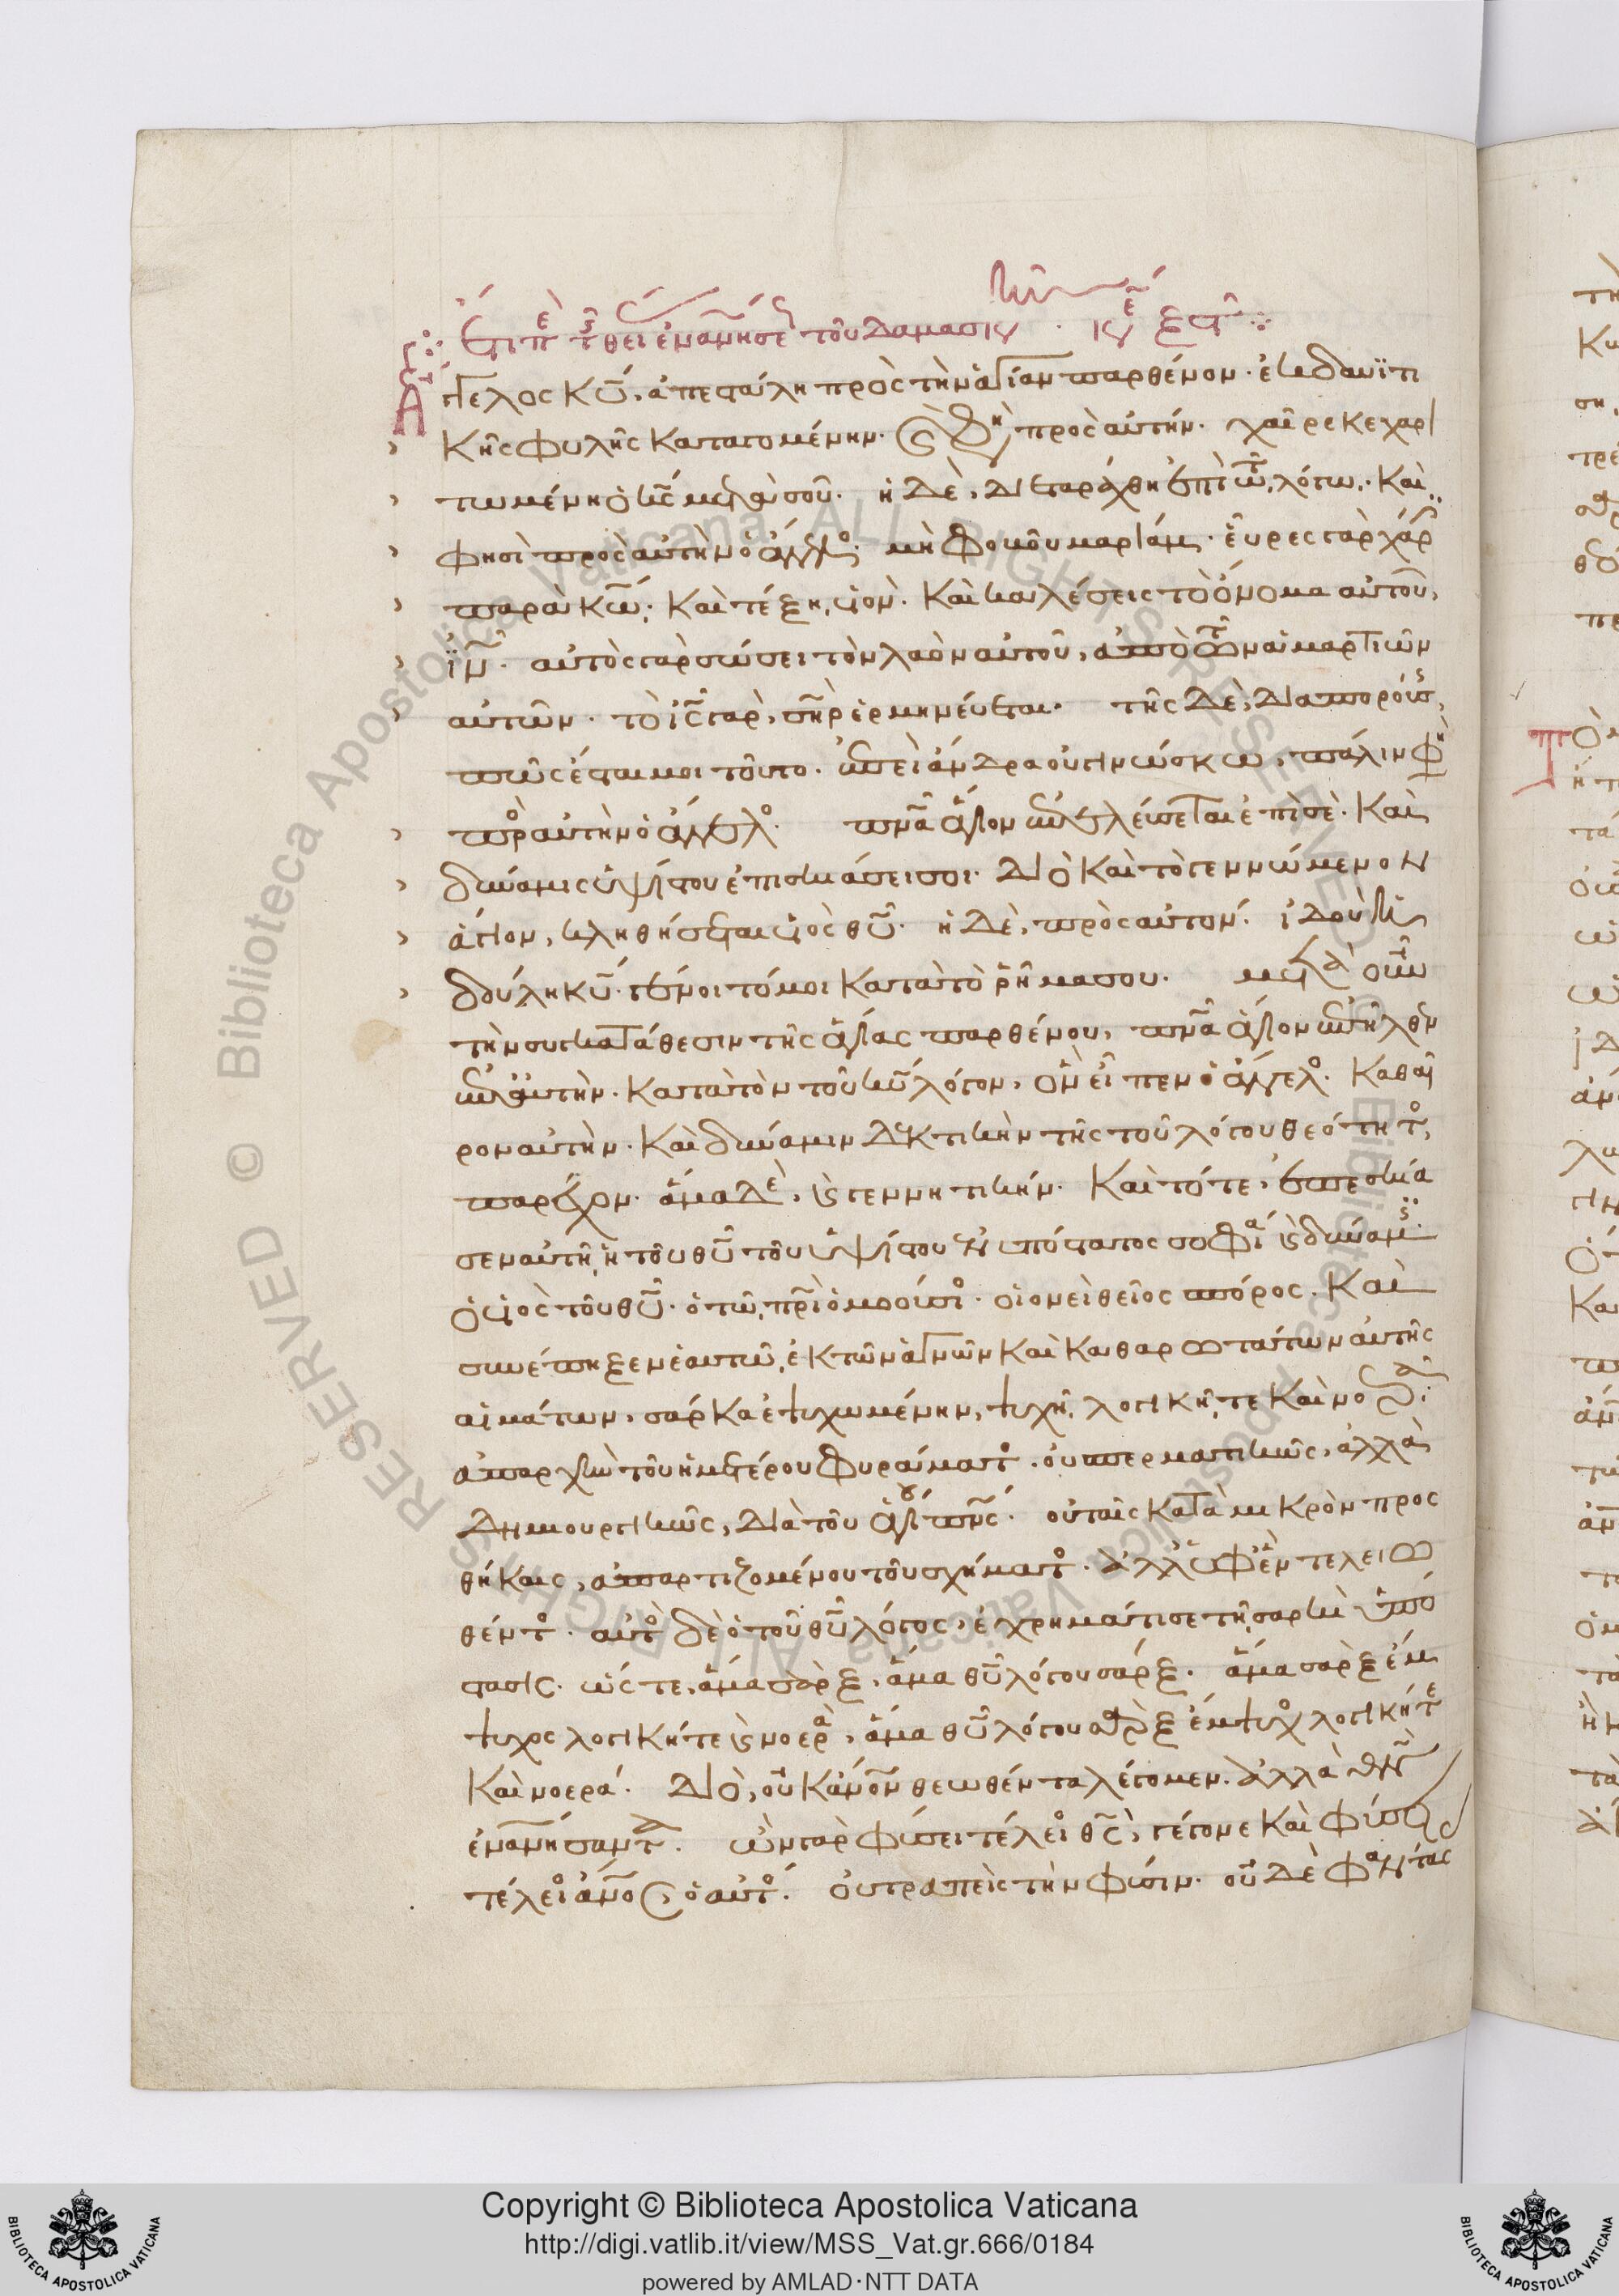 Ἔτι περὶ τῆς θείας ἐνανθρωπήσεως τοῦ Δαμασκηνοῦ
Ἄγγελος κυ, ἀπεστάλη πρὸς τὴν ἁγίαν παρθένον· ἐκ δαυϊτι
κῆς φυλῆς καταγομένην· καὶ φησὶ πρὸς αὐτήν· χαῖρε κεχαρι
τωμένη ὁ κς μετὰ σοῦ· ἡ δὲ, διεταράχθη ἐπὶ τῷ λόγῳ· καὶ
φησὶ πρὸς αὐτὴν ὁ ἄγγελος· μὴ φοβοῦ μαριάμ· εὗρες γὰρ χάριν
παρὰ κω· καὶ τέξῃ υἱόν· καὶ καλέσεις τὸ ὄνομα αὐτοῦ,
ιν· αὐτὸς γὰρ σώσει τὸν λαὸν αὐτοῦ, ἀπὸ τῶν ἁμαρτιῶν
αὐτῶν· τὸ ις γὰρ, σηρ ἑρμηνεύεται· τῆς δὲ, διαπορούσης,
πῶς ἔσται μοι τοῦτο· ἐπεὶ ἄνδρα οὐ γινώσκω, πάλιν φησὶ
πρὸς αὐτὴν ὁ ἄγγελος· πνα ἅγιον ἐπελεύσεται ἐπὶ σὲ· καὶ
δύναμις ὑψίστου ἐπισκιάσει σοι· διὸ καὶ τὸ γεννώμενον
ἅγιον, κληθήσεται υἱὸς θυ· ἡ δὲ, πρὸς αὐτον· ἰδοὺ ἡ
δούλη κυ· γένοιτό μοι κατὰ τὸ ῥῆμα σου· μετὰ οὖν
τὴν συγκατάθεσιν τῆς ἁγίας παρθένου, πνα ἅγιον ἐπῆλθεν
ἐπ' αὐτὴν· κατὰ τὸν τοῦ κυ λόγον, ὃν εἶπεν ὁ ἄγγελος· καθαῖ
ρον αὐτὴν· καὶ δύναμιν δεκτικὴν τῆς τοῦ λόγου θεότητος,
παρέχον· ἅμα δὲ, καὶ γεννητικήν· καὶ τότε, ἐπεσκία
σεν αὐτῇ, ἡ τοῦ θυ τοῦ ὑψίστου ἐνυπόστατος σοφία καὶ δύναμις
ὁ υἱὸς τοῦ θυ· ὁ τῷ πρι ὁμοούσιος· οἱονεὶ θεῖος σπόρος· καὶ
συνέπηξεν ἑαυτῷ, ἐκ τῶν ἁγνῶν καὶ καθαρωτάτων αὐτῆς
αἱμάτων, σάρκα ἐψυχωμένην, ψυχῇ, λογικῇ τε καὶ νοερᾷ·
ἀπαρχὴν τοῦ ἡμετέρου φυράματος· οὐ σπερματικῶς, ἀλλὰ
δημιουργικῶς, διὰ τοῦ ἁγίου πνς· οὐ ταῖς κατὰ μικρὸν προς
θήκαις, ἀπαρτιζομένου τοῦ σχήματος· ἀλλ' ὑφ' ἓν τελειω
θέντος· αὐτὸς δὲ ὁ τοῦ θυ λόγος, ἐχρημάτισε τῇ σαρκὶ ὑπό
στασις· ὥς τε, ἅμα σὰρξ, ἅμα θυ λόγου σάρξ· ἅμα σὰρξ ἔμ
ψυχος λογική τε καὶ νοερὰ, ἅμα θυ λόγου σὰρξ ἔμψυχος λογική τε
καὶ νοερά· διὸ, οὐκ ἄνον θεωθέντα λέγομεν· ἀλλὰ θν
ἐνανθρωπήσαντα· ὢν γὰρ φύσει τέλειος θς, γέγονε καὶ φύσει
τέλειος ἄνος, ὁ αὐτός· οὐ τραπεὶς τὴν φύσιν· οὐδὲ φαντάσ
Copyright © Biblioteca Apostolica Vaticana
http://digi.vatlib.it/view/MSS_Vat.gr.666/0184
powered by AMLAD·NTT DATA